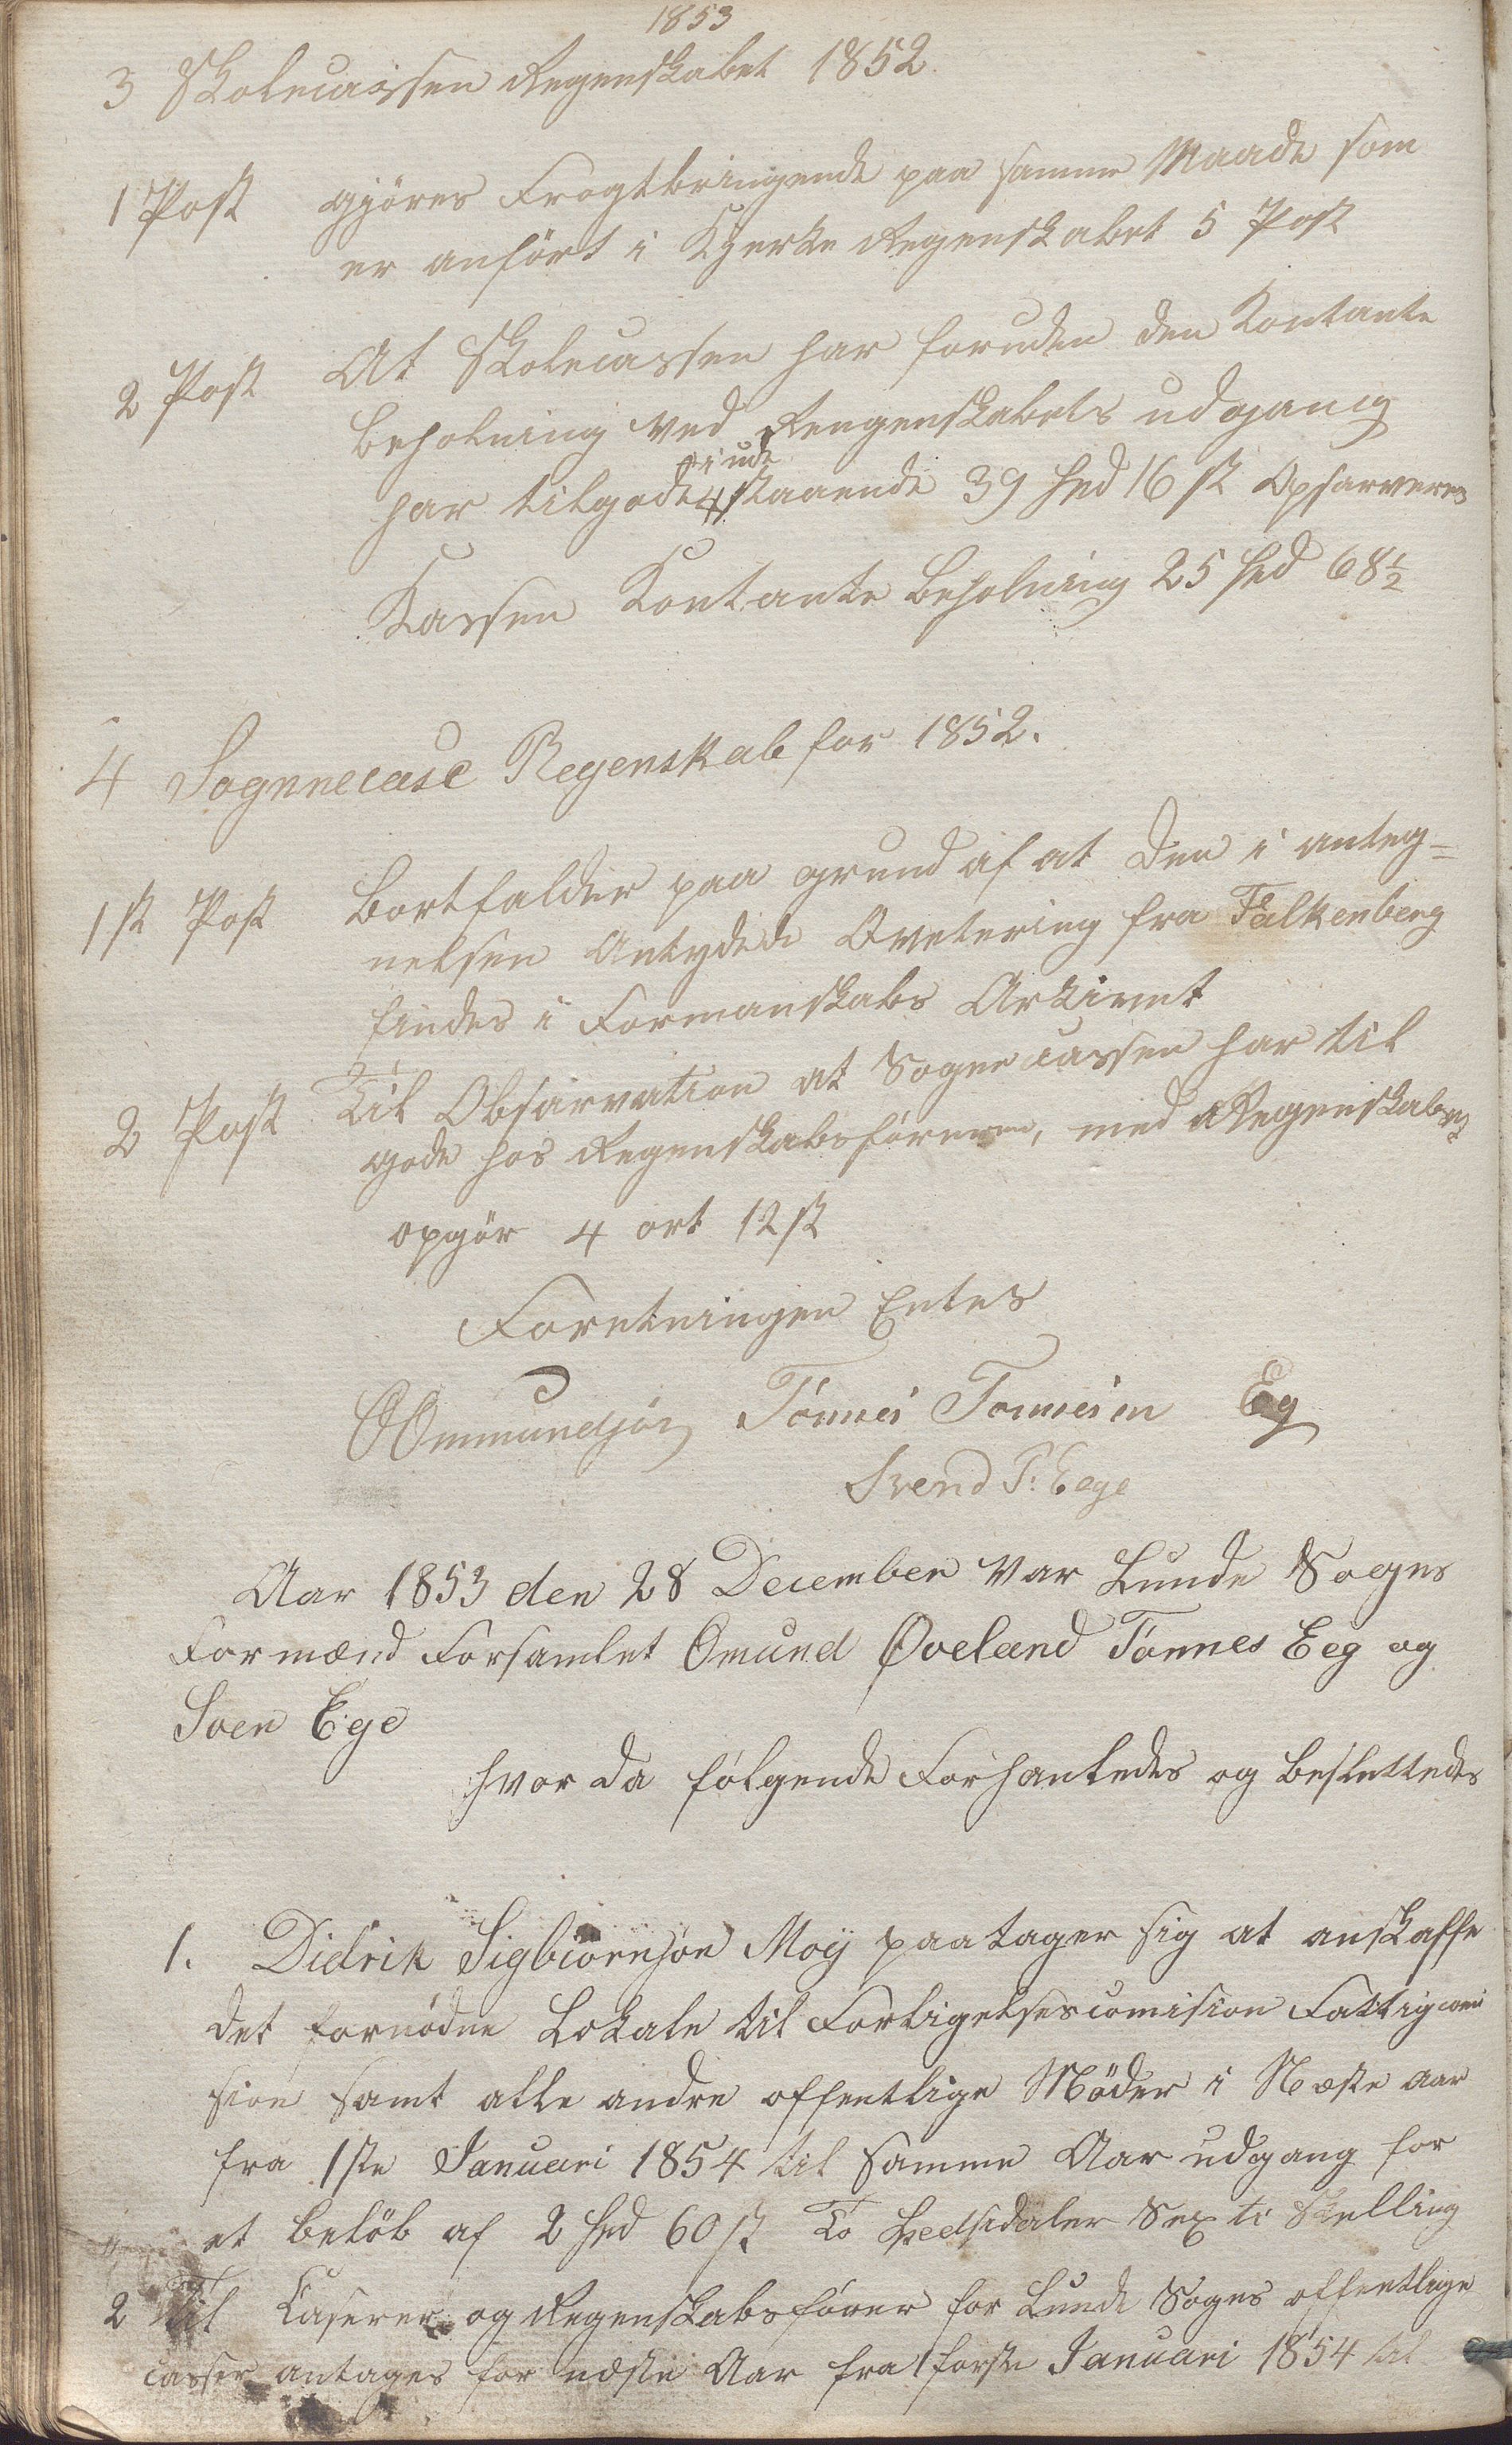 1853
3 Skolecassen Regenskabet 1852.
1 Post gjöres Frogtbringende paa samme Maade som
er anfört i Kjerke Regenskabet 5 Post
2 Post At Skolecassen har foruden den Kontante
Beholning ved Rengenskabets udgang
i ude
har tilgode staaende 39 Spd 16 sk Opsarveres
Kassen Kontante Beholning 25 Spd 68½
4 Sognnecase Regenskab for 1852.
1st Post Bortfalder paa grund af at den i anteg=
nelsen Antydede Qvetering fra Falkenberg
findes i Formanskabs Arkivet
2 Post Til Obsarvation at Sognecassen har til
gode hos Regenskabsföreren, med Regenskabes
opgör 4 ort 12 sk
Foretningen Entes
OOmmundsön Tönnes Tönnesen Eg
Svend P: Eege
Aar 1853 den 28 December Var Lunde Sogns
Formænd Forsamlet Omund Øveland Tönnes Eeg og
Sven Ege
hvor da fölgende Forhantedes og Beslettedes
1. Didrik Sigbiörnsön Moÿ paatager sig at anskaffe
det fornödne Lokale til Forligelsescomision Fattigcomi
sion samt alle andre offentlige Möder i Næste Aar
fra 1ste Januari 1854 til samme Aar udgang for
" et belöb af 2 Spd 60 sk To Spedsidaler Sex ti Skelling
2 Til Caserer og Regenskabsförer for Lunde Sogns offentlige
casser antages for næste Aar fra förste Januari 1854 til